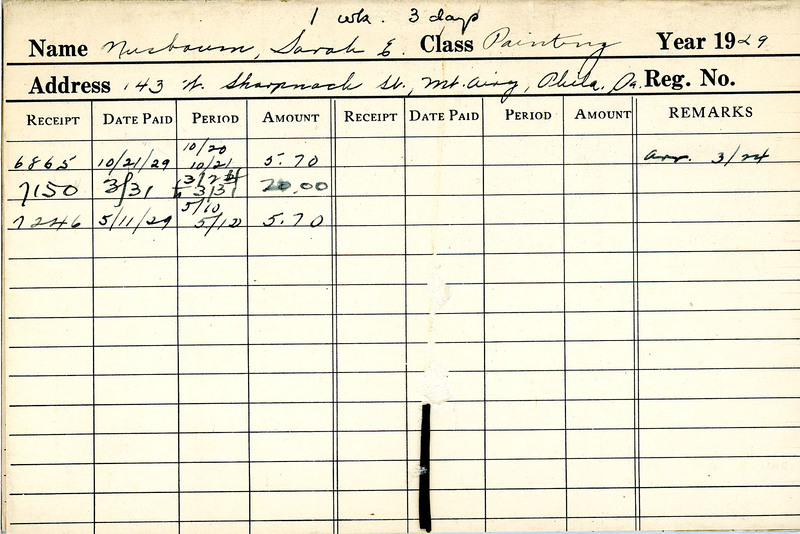 1 wk. 3 days
Name Nusbaum, Sarah E. Class Painting Year 1929
Address 143 W. Sharpnack St., Mt. Airy, Phila. Pa. Reg. No.
RECEIPT DATE PAID PERIOD AMOUNT RECEIPT DATE PAID PERIOD AMOUNT REMARKS
10/20
6865 10/21/29 10/21 5.70 arr. 3/24
3/24
7150 3/31 to 3/31 20.00
5/10
7246 5/11/29 5/12 5.70